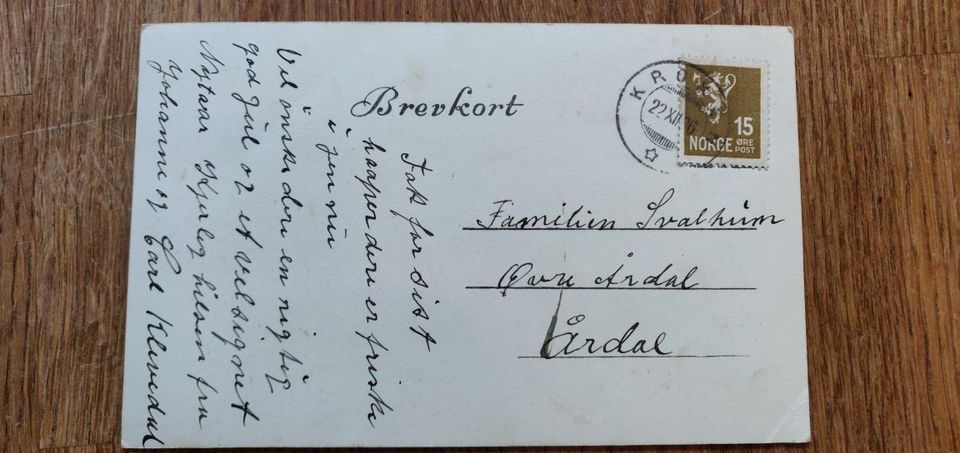 Brevkort
KRO
22 XII
15
NORGE ØRE
POST
Familien Svalheim
Øvre Årdal
Årdal
Vil ønske dere en rigtig
god Jul og et velsignet
Nytaar Kjerlig hilsen fra
Johanne og Carl Klevedal
Tak for sist
haaper dere er friske
i fra nu